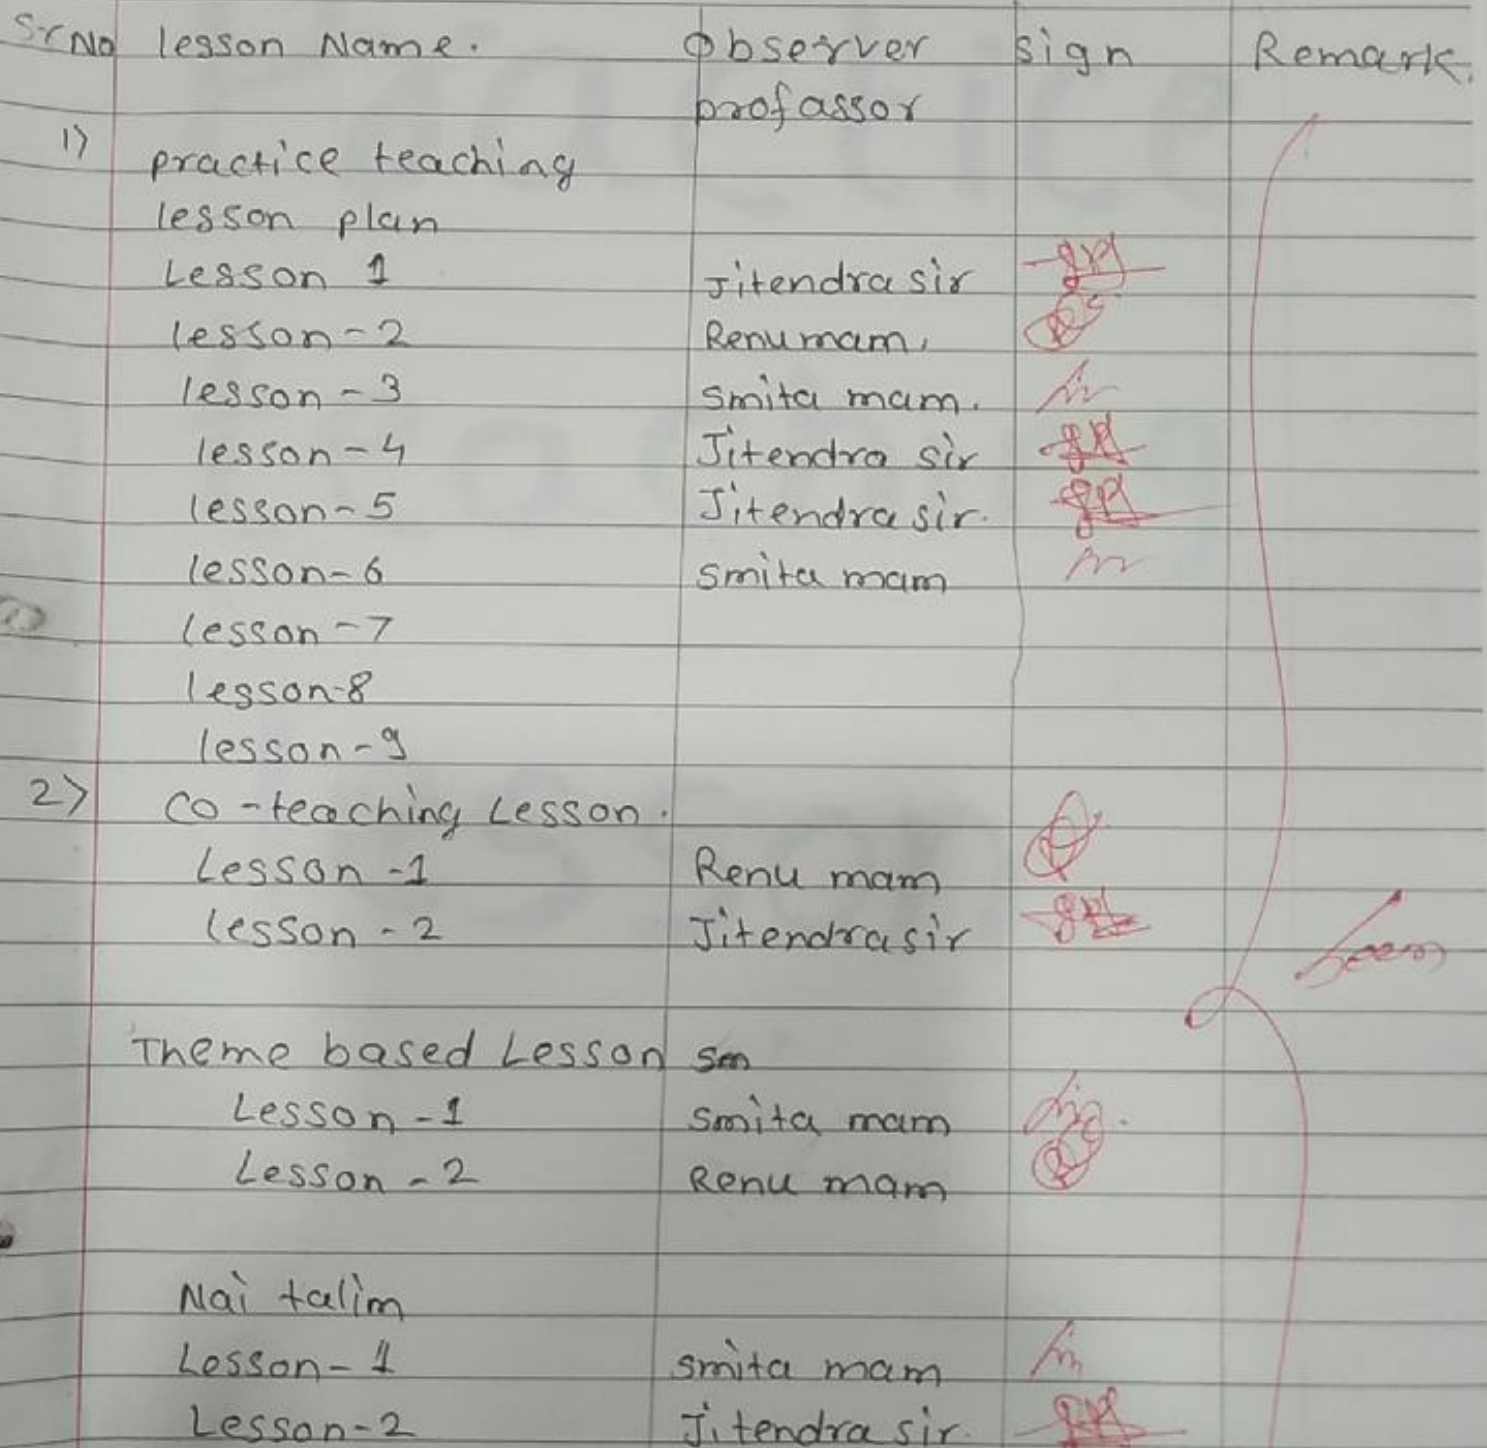 Sr No lesson Name. Observer sign Remark.
profassor
1) practice teaching
lesson plan
Lesson 1 Jitendra sir
lesson-2 Renu mam.
lesson-3 Smita mam.
lesson-4 Jitendra sir
lesson-5 Jitendra sir.
lesson-6 Smita mam
lesson-7
lesson-8
lesson-9
2) co-teaching Lesson.
Lesson-1 Renu mam
lesson-2 Jitendra sir
Seen
Theme based Lesson Sm
Lesson-1 Smita mam
Lesson-2 Renu mam
Nai talim
Lesson-1 Smita mam
Lesson-2 Jitendra sir.